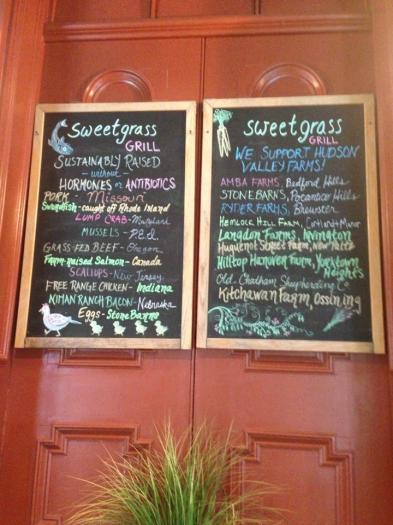 Sweetgrass
GRILL
SUSTAINABLY RAISED
without
HORMONES or ANTIBIOTICS
PORK - Missouri
Swordfish - caught off Rhode Island
LUMP CRAB - Maryland
MUSSELS - P.E.I.
GRASS-FED BEEF - Oregon
Farm-raised Salmon - Canada
SCALLOPS - New Jersey
FREE RANGE CHICKEN - Indiana
NIMAN RANCH BACON - Nebraska
Eggs - Stone Barns
Sweetgrass
GRILL
WE SUPPORT HUDSON
VALLEY FARMS!
AMBA FARMS, Bedford Hills
STONE BARNS, Pocantico Hills
RYDER FARMS, Brewster
HEMLOCK HILL FARM, Cortlandt Manor
Langdon Farms, Irvington
Huguenot Street Farm, New Paltz
Hilltop Hanover Farm, Yorktown
Heights
Old Chatham Shepherding Co
Kitchawan Farm, Ossining